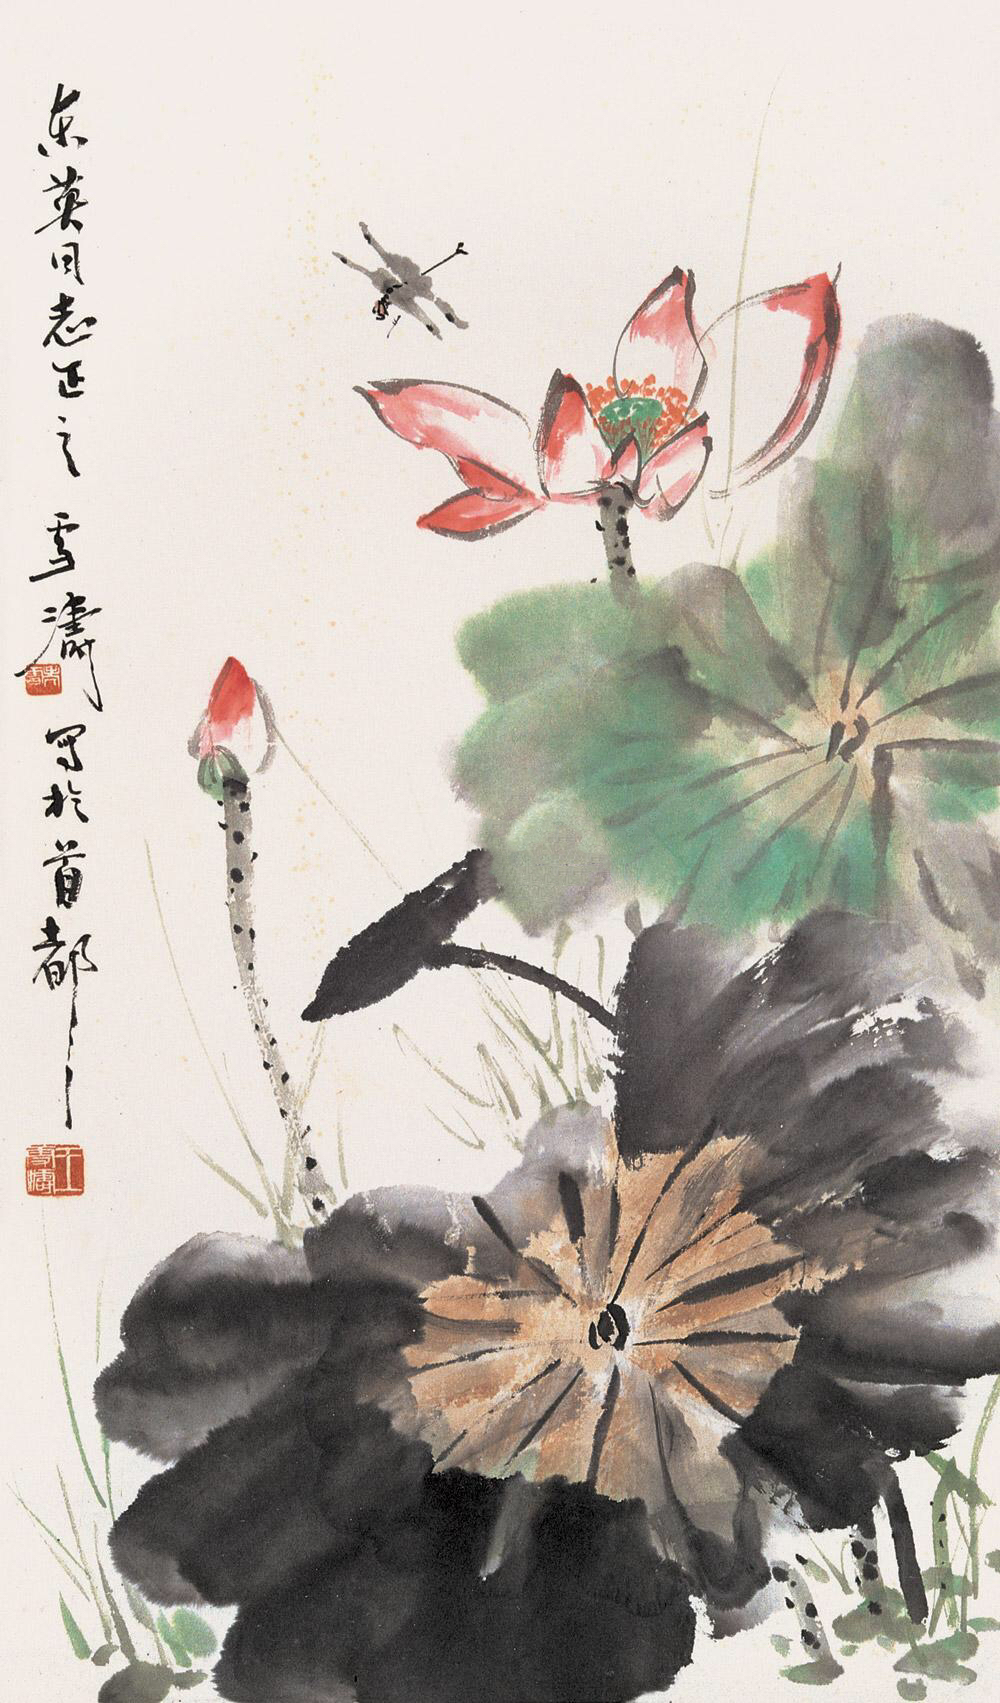 东英同志正之 雪濤 写於首都
王雪濤